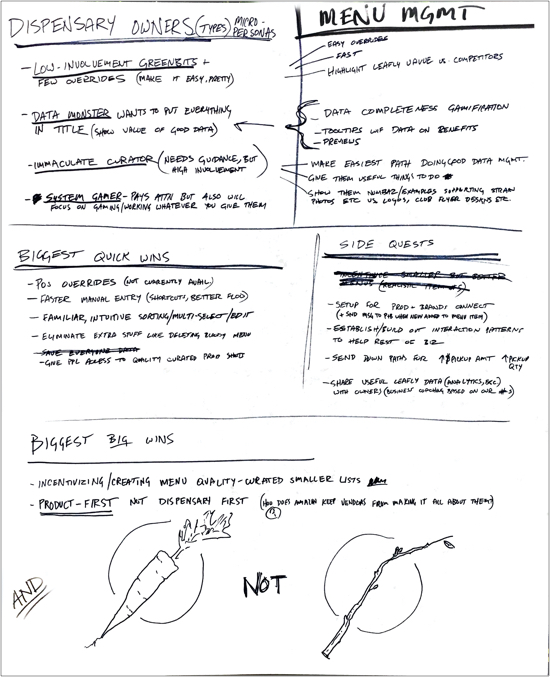 DISPENSARY OWNERS (TYPES) MICRO-
PERSONAS
- LOW-INVOLVEMENT GREENBITS +
FEW OVERRIDES (MAKE IT EASY, PRETTY)
- DATA MONSTER WANTS TO PUT EVERYTHING
IN TITLE (SHOW VALUE OF GOOD DATA)
- IMMACULATE CURATOR (NEEDS GUIDANCE, BUT
HIGH INVOLVEMENT)
- SYSTEM GAMER - PAYS ATTN BUT ALSO WILL
FOCUS ON GAMING/WORKING WHATEVER YOU GIVE THEM
MENU MGMT
EASY OVERRIDES
FAST
HIGHLIGHT LEAFLY VALUE VS. COMPETITORS
- DATA COMPLETENESS GAMIFICATION
- TOOLTIPS W/ DATA ON BENEFITS
- PREVIEWS
- MAKE EASIEST PATH DOING GOOD DATA MGMT.
GIVE THEM USEFUL THINGS TO DO
SHOW THEM NUMBAZ/EXAMPLES SUPPORTING STRAIN
PHOTOS ETC VS. LOGOS, CLUB FLYER DESIGNS ETC.
BIGGEST QUICK WINS
- POS OVERRIDES (NOT CURRENTLY AVAIL.)
- FASTER MANUAL ENTRY (SHORTCUTS, BETTER FLOW)
- FAMILIAR, INTUITIVE SORTING/MULTI-SELECT/EDIT
- ELIMINATE EXTRA STUFF LIKE DELETING BLOODY MENU
- SAVE EVERYONE DATA
- GIVE PPL ACCESS TO QUALITY CURATED PROD SHOTS
SIDE QUESTS
- SETUP FOR PROD + BRANDS CONNECT
(+ SEND MSG TO PUB WHEN NEW ADDED TO MENU ITEM)
- ESTABLISH/BUILD OUT INTERACTION PATTERNS
TO HELP REST OF BIZ
- SEND DOWN PATHS FOR ↑$ PICKUP AMT ↑ PICKUP
QTY
- SHARE USEFUL LEAFLY DATA (ANALYTICS, ETC)
WITH OWNERS) (BUSINESS COACHING BASED ON OUR #S)
BIGGEST BIG WINS
- INCENTIVIZING/CREATING MENU QUALITY-CURATED SMALLER LISTS
- PRODUCT-FIRST NOT DISPENSARY FIRST (HOW DOES AMAZON KEEP VENDORS FROM MAKING IT ALL ABOUT THEM?)
AND
NOT